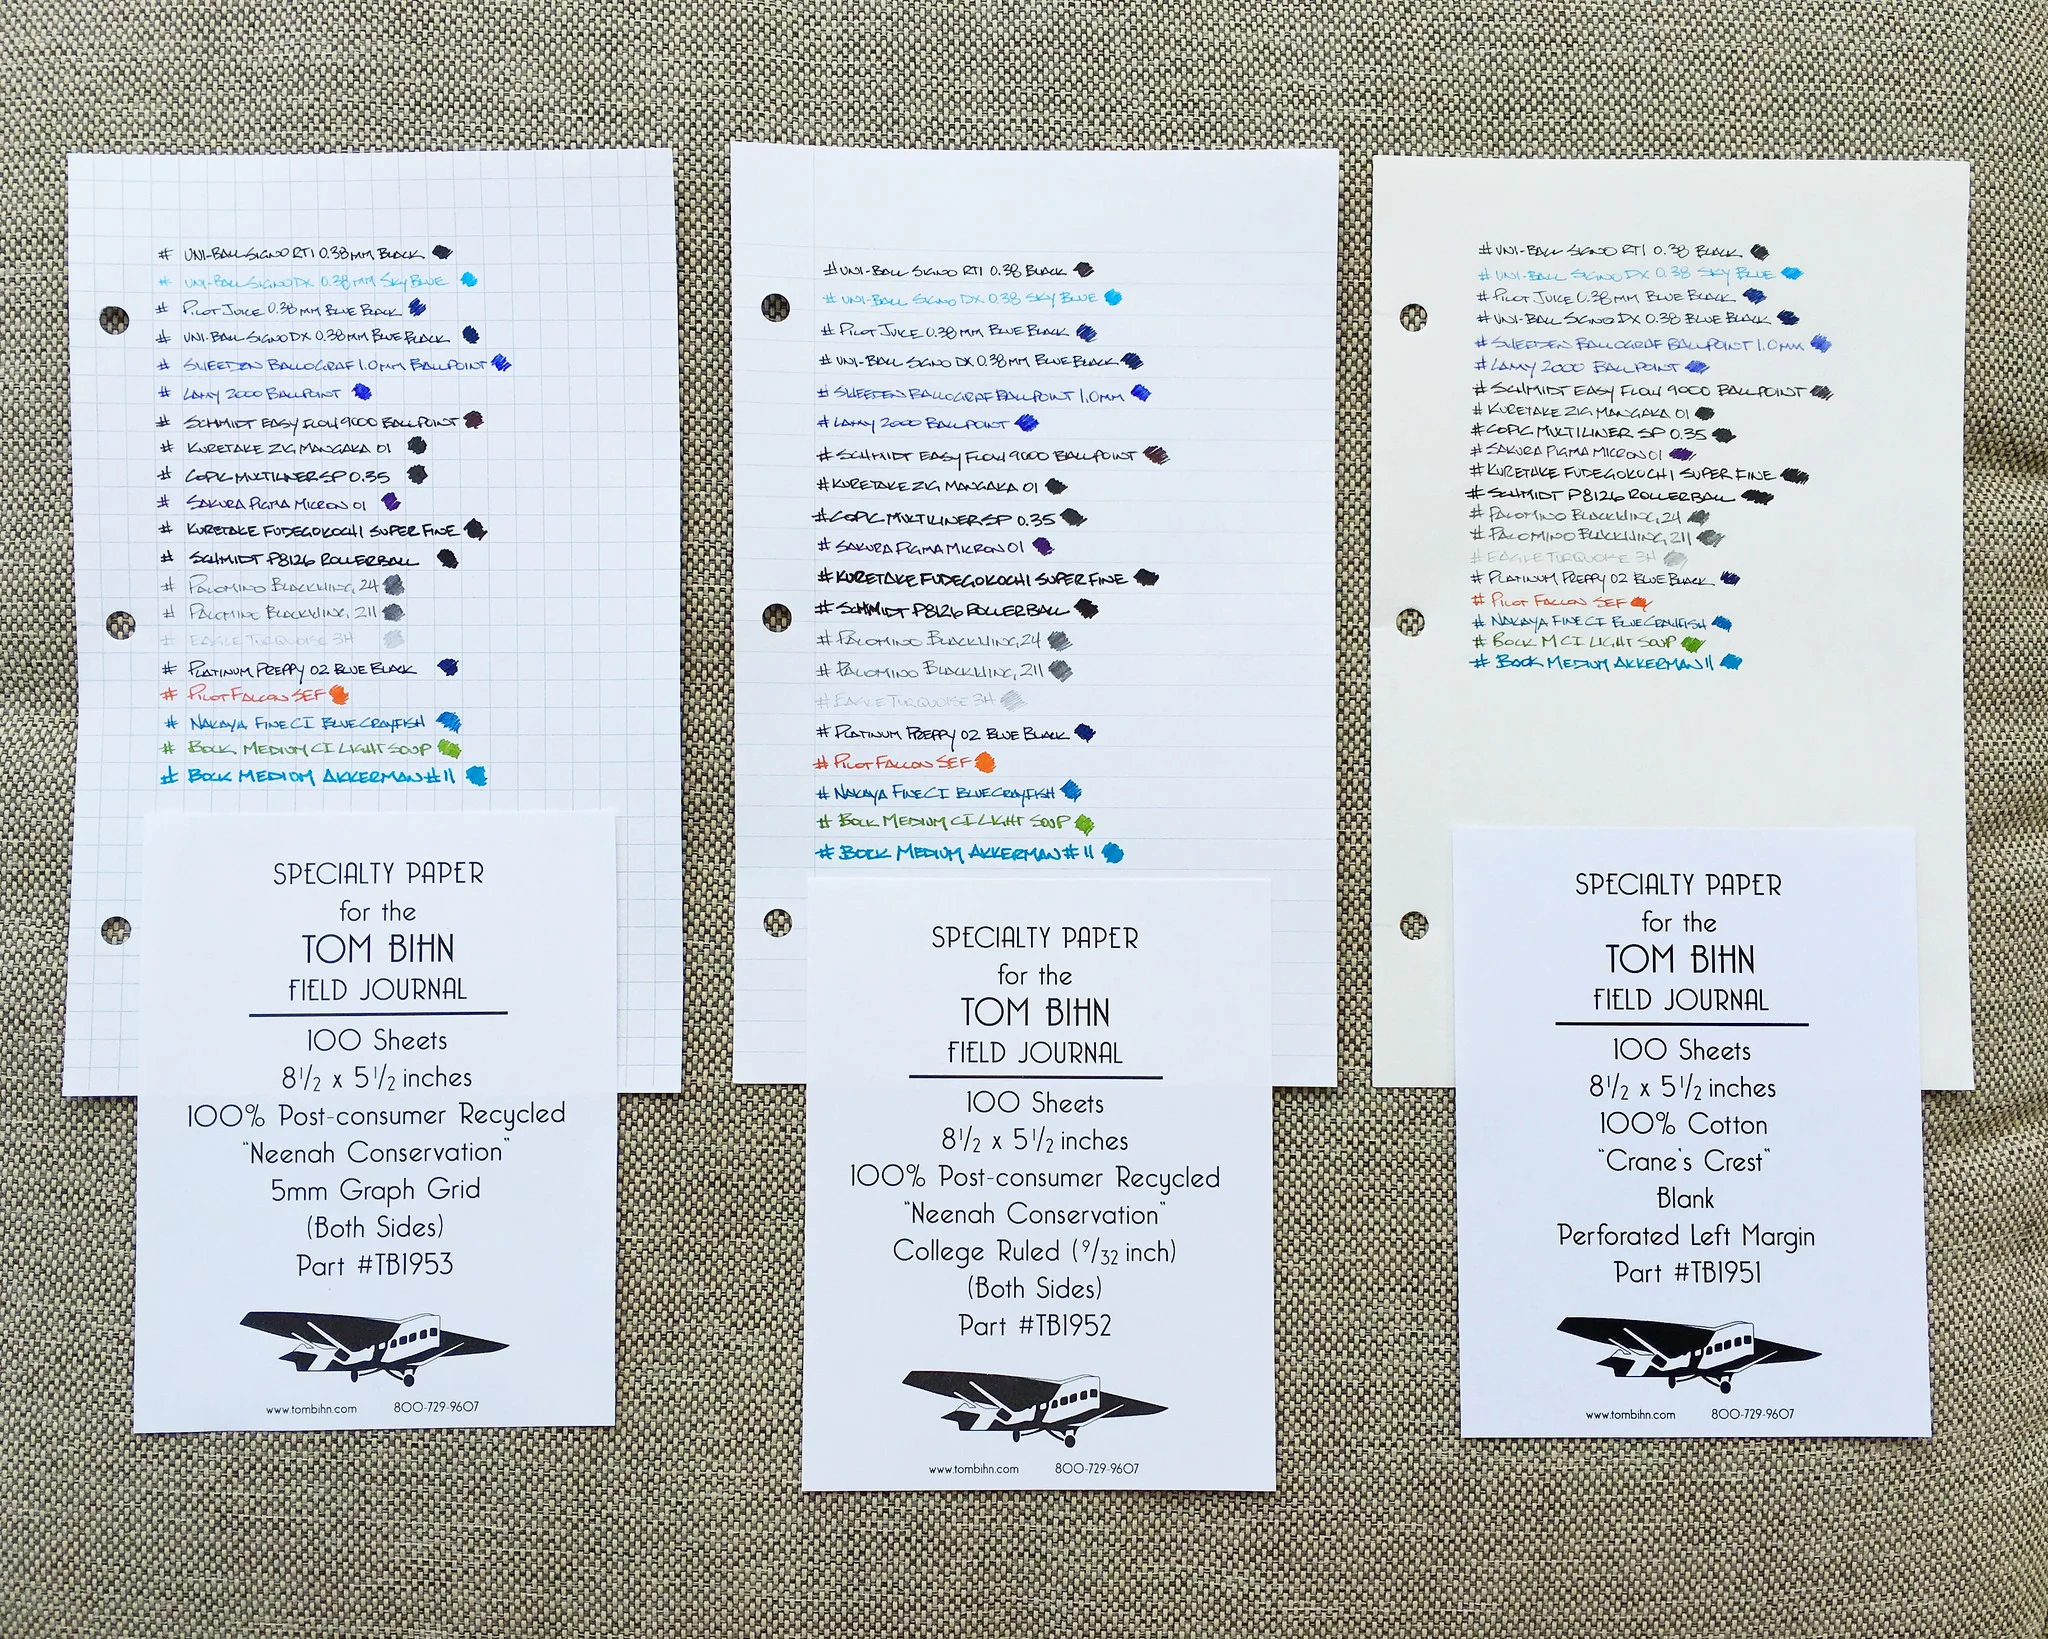 # UNI-BALL SIGNO RT1 0.38MM BLACK
# UNI-BALL SIGNO DX 0.38MM SKY BLUE
# PILOT JUICE 0.38MM BLUE BLACK
# UNI-BALL SIGNO DX 0.38MM BLUE BLACK
# SWEEDEN BALLOGRAF 1.0MM BALLPOINT
# LAMY 2000 BALLPOINT
# SCHMIDT EASY FLOW 9000 BALLPOINT
# KURETAKE ZIG MANGAKA 01
# COPIC MULTILINER SP 0.35
# SAKURA PIGMA MICRON 01
# KURETAKE FUDEGOKOCHI SUPER FINE
# SCHMIDT P8126 ROLLERBALL
# PALOMINO BLACKWING 24
# PALOMINO BLACKWING 211
# EAGLE TURQUOISE 3H
# PLATINUM PREPPY 02 BLUE BLACK
# PILOT FALCON SEF
# NAKAYA FINE CI BLUE CRAYFISH
# BOCK MEDIUM CI LIGHT SOUP
# BOCK MEDIUM AKKERMAN #11
SPECIALTY PAPER
for the
TOM BIHN
FIELD JOURNAL
100 Sheets
8 1/2 x 5 1/2 inches
100% Post-consumer Recycled
"Neenah Conservation"
5mm Graph Grid
(Both Sides)
Part #TB1953
www.tombihn.com 800-729-9607
# UNI-BALL SIGNO RT1 0.38 BLACK
# UNI-BALL SIGNO DX 0.38 SKY BLUE
# PILOT JUICE 0.38MM BLUE BLACK
# UNI-BALL SIGNO DX 0.38MM BLUE BLACK
# SWEEDEN BALLOGRAF BALLPOINT 1.0MM
# LAMY 2000 BALLPOINT
# SCHMIDT EASY FLOW 9000 BALLPOINT
# KURETAKE ZIG MANGAKA 01
# COPIC MULTILINER SP 0.35
# SAKURA PIGMA MICRON 01
# KURETAKE FUDEGOKOCHI SUPER FINE
# SCHMIDT P8126 ROLLERBALL
# PALOMINO BLACKWING 24
# PALOMINO BLACKWING 211
# EAGLE TURQUOISE 3H
# PLATINUM PREPPY 02 BLUE BLACK
# PILOT FALCON SEF
# NAKAYA FINE CI BLUE CRAYFISH
# BOCK MEDIUM CI LIGHT SOUP
# BOCK MEDIUM AKKERMAN #11
SPECIALTY PAPER
for the
TOM BIHN
FIELD JOURNAL
100 Sheets
8 1/2 x 5 1/2 inches
100% Post-consumer Recycled
"Neenah Conservation"
College Ruled (9/32 inch)
(Both Sides)
Part #TB1952
www.tombihn.com 800-729-9607
# UNI-BALL SIGNO RT1 0.38 BLACK
# UNI-BALL SIGNO DX 0.38 SKY BLUE
# PILOT JUICE 0.38MM BLUE BLACK
# UNI-BALL SIGNO DX 0.38 BLUE BLACK
# SWEEDEN BALLOGRAF BALLPOINT 1.0MM
# LAMY 2000 BALLPOINT
# SCHMIDT EASY FLOW 9000 BALLPOINT
# KURETAKE ZIG MANGAKA 01
# COPIC MULTILINER SP 0.35
# SAKURA PIGMA MICRON 01
# KURETAKE FUDEGOKOCHI SUPER FINE
# SCHMIDT P8126 ROLLERBALL
# PALOMINO BLACKWING 24
# PALOMINO BLACKWING 211
# EAGLE TURQUOISE 3H
# PLATINUM PREPPY 02 BLUE BLACK
# PILOT FALCON SEF
# NAKAYA FINE CI BLUE CRAYFISH
# BOCK M CI LIGHT SOUP
# BOCK MEDIUM AKKERMAN 11
SPECIALTY PAPER
for the
TOM BIHN
FIELD JOURNAL
100 Sheets
8 1/2 x 5 1/2 inches
100% Cotton
"Crane's Crest"
Blank
Perforated Left Margin
Part #TB1951
www.tombihn.com 800-729-9607